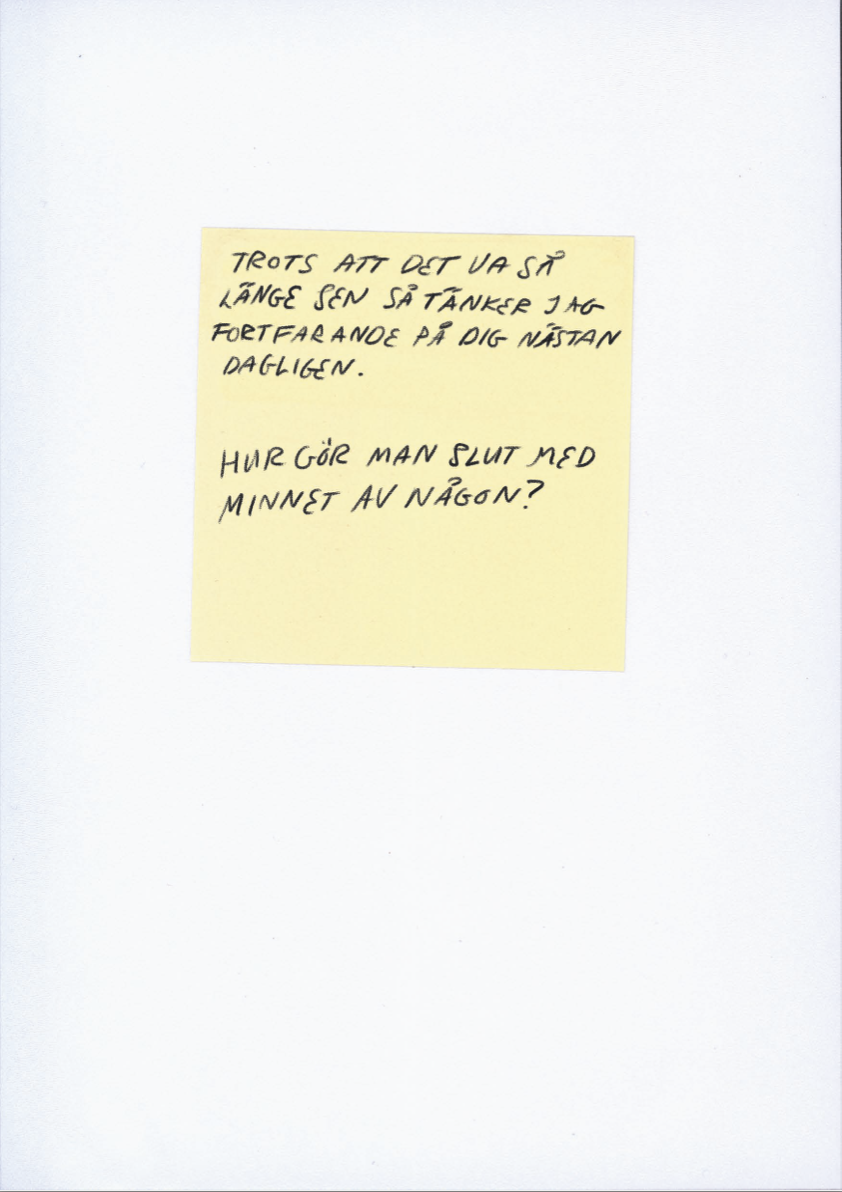 TROTS ATT DET VA SÅ
LÄNGE SEN SÅ TÄNKER JAG
FORTFARANDE PÅ DIG NÄSTAN
DAGLIGEN.
HUR GÖR MAN SLUT MED
MINNET AV NÅGON?